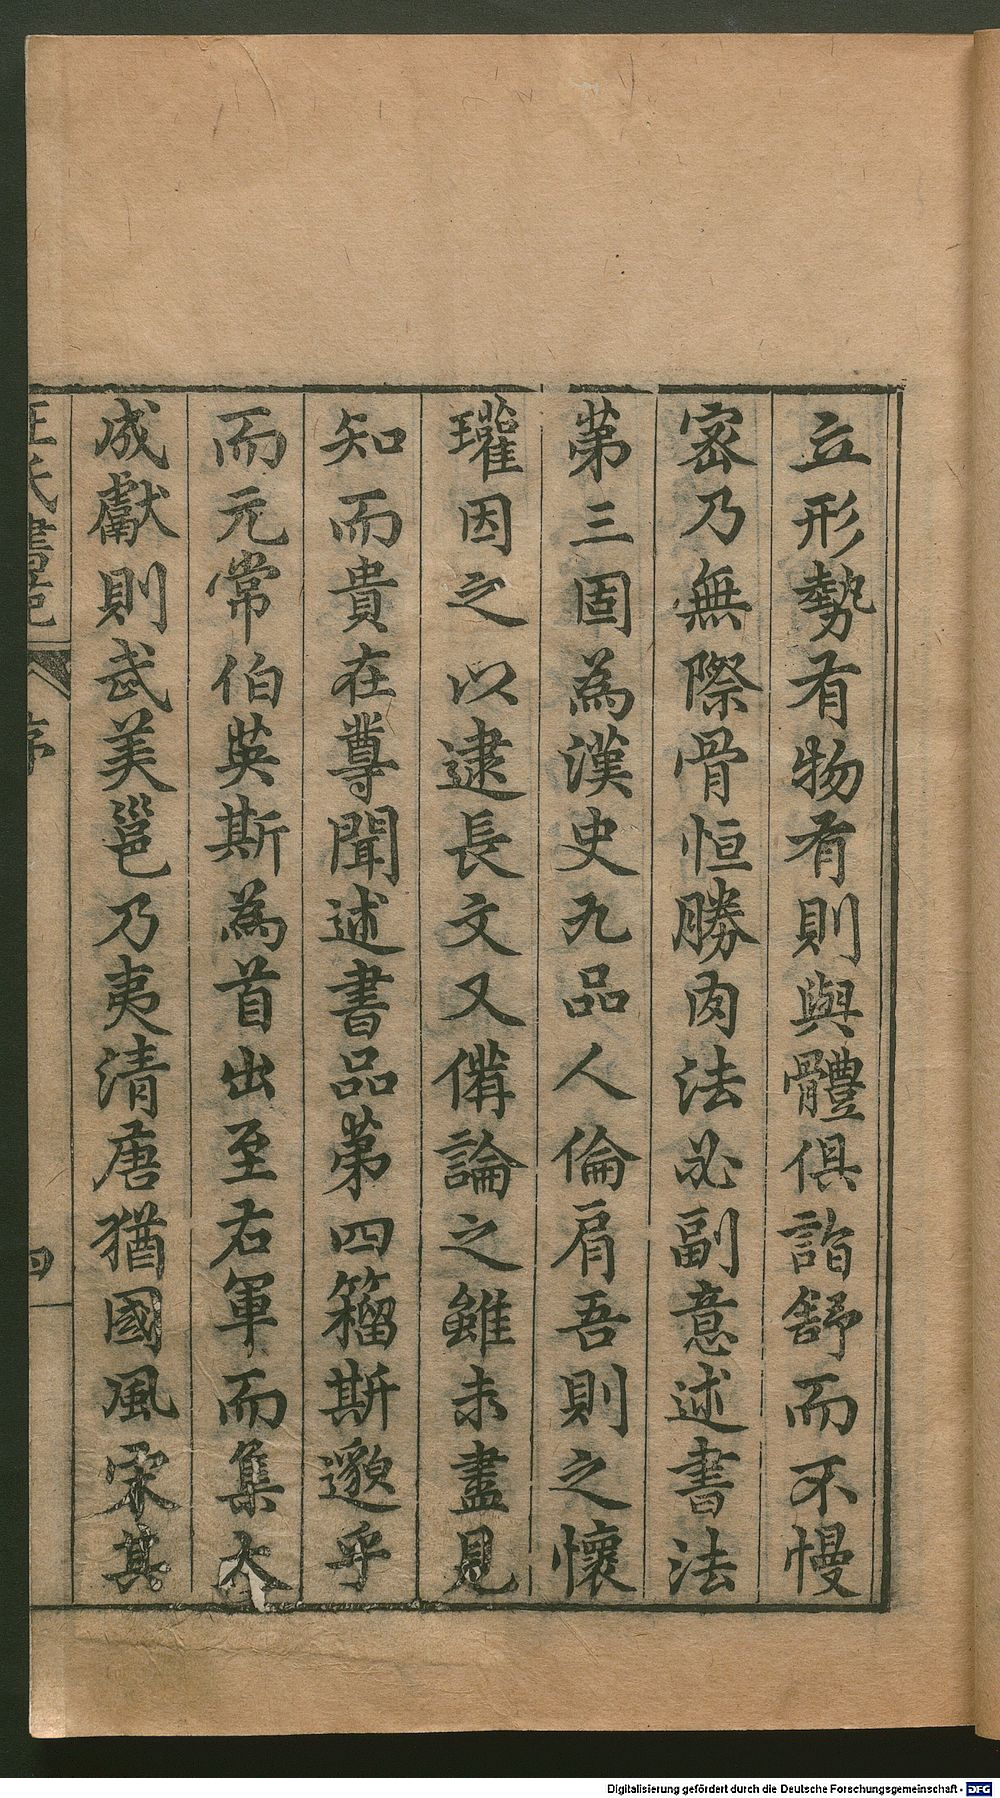 立形勢有物有則與體俱詣舒而不慢
密乃無際骨恒勝肉法必副意述書法
第三固為漢史九品人倫肩吾則之懷
瓘因之以逮長文又備論之雖未盡見
知而貴在尊聞述書品第四籀斯邈乎
而元常伯英斯為首出至右軍而集大
成獻則武美邕乃夷清唐猶國風宋其
氏書苑
序
四
Digitalisierung gefördert durch die Deutsche Forschungsgemeinschaft - DFG